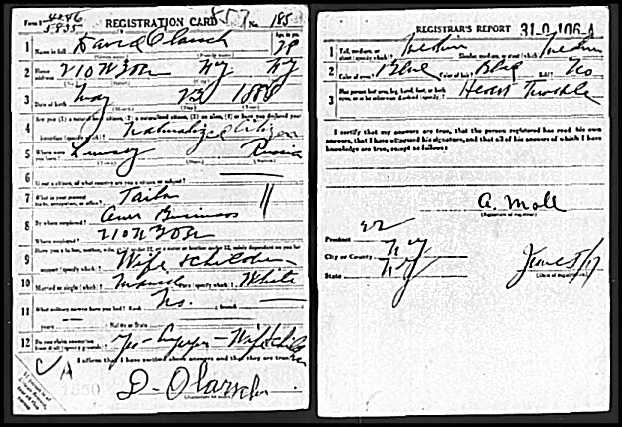 Form 1 4446 5835 REGISTRATION CARD 857 No. 185
1 Name in full David Olarsch Age, in yrs 28
2 Home address 210 W NY NY
3 Date of birth May 1888
4 Are you (1) a natural-born citizen, (2) a naturalized citizen, (3) an alien, (4) or have you declared your
intention (specify which)? Naturalized Citizen
5 Where were you born? Russia
6 If not a citizen, of what country are you a citizen or subject?
7 What is your present trade, occupation, or office? Tailor 11
8 By whom employed? Own Business
Where employed? 210 W
9 Have you a father, mother, wife, child under 12, or a sister or brother under 12, solely dependent on you for
support (specify which)? Wife & children
10 Married or single (which)? Married Race (specify which)? White
11 What military service have you had? Rank No. ; branch
years ; Nation or State
12 Do you claim exemption from draft (specify grounds)? Yes - - Wife & child
A I affirm that I have verified above answers and that they are true.
D - Olarsch
REGISTRAR'S REPORT 31-9-106-A
1 Tall, medium, or short (specify which)? Medium Slender, medium, or stout (which)? Medium
2 Color of eyes? Blue Color of hair? Blk Bald? No
3 Has person lost arm, leg, hand, foot, or both eyes, or is he otherwise disabled (specify)? Heart Trouble
I certify that my answers are true, that the person registered has read his own
answers, that I have witnessed his signature, and that all of his answers of which I have
knowledge are true, except as follows:
A. Moll
(Signature of registrar)
Precinct 22
City or County NY
State NY June 5/17
(Date of registration)